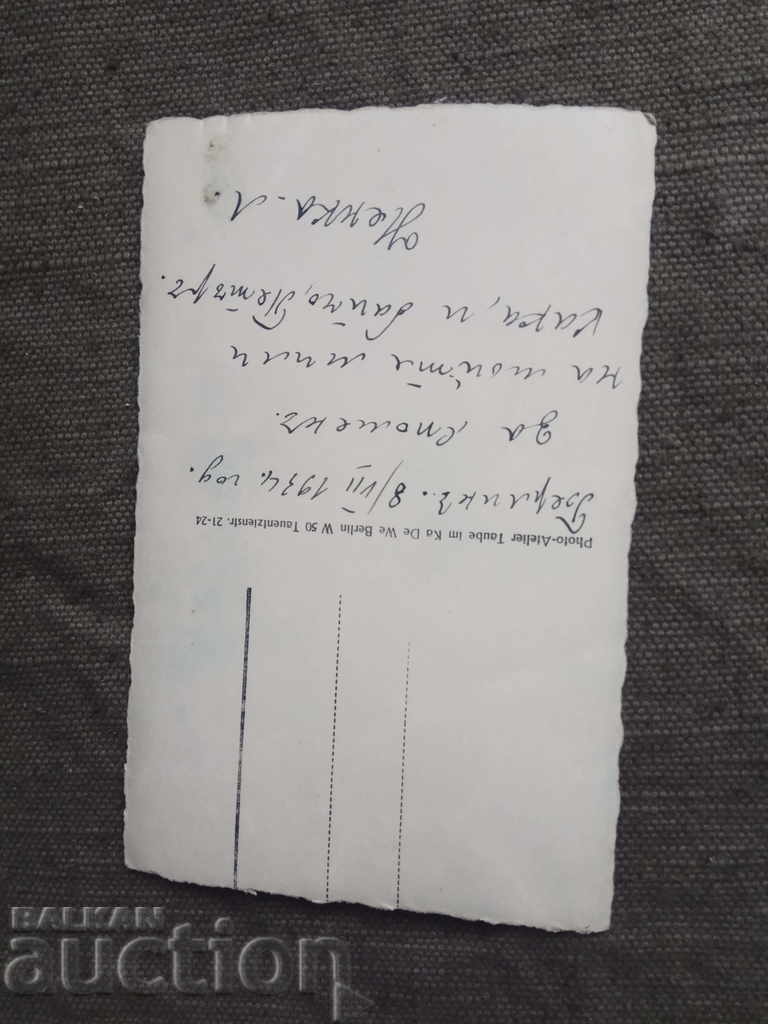 Photo-Atelier Taube im Ka De We Berlin W 50 Tauentzienstr. 21-24
Берлинъ. 8/VII 1934. год.
За споменъ.
на моитѣ мили
кака, и байчо, Петъръ.
Ненка. Л.
BALKAN
auction